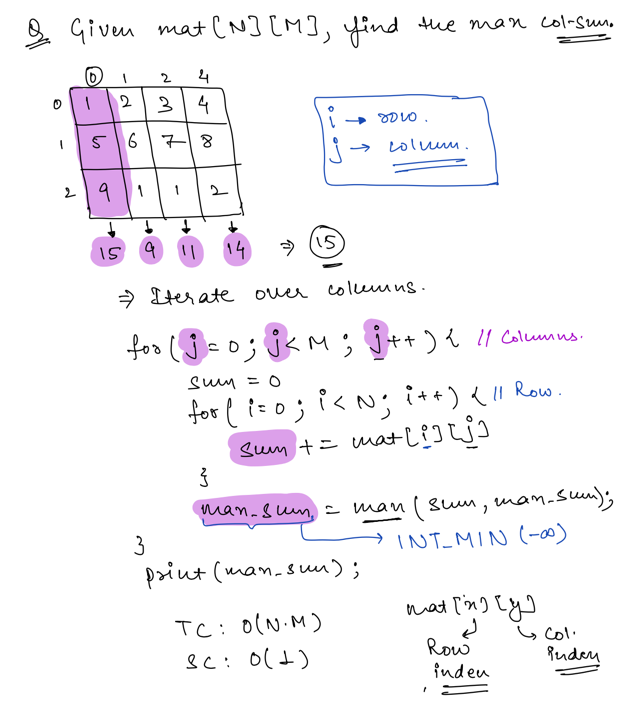 Q Given mat[N][M], find the max col-sum.
0 1 2 4
0 1 2 3 4
1 5 6 7 8
2 9 1 1 2
i → row.
j → column.
15 9 11 14 ⇒ 15
⇒ Iterate over columns.
for(j=0; j<M; j++) { // Columns.
sum = 0
for(i=0; i<N; i++) { // Row.
sum += mat[i][j]
}
max_sum = max(sum, max_sum);
→ INT_MIN (-∞)
}
print(max_sum);
TC: O(N.M)
SC: O(1)
mat[x][y]
Row index
Col. index